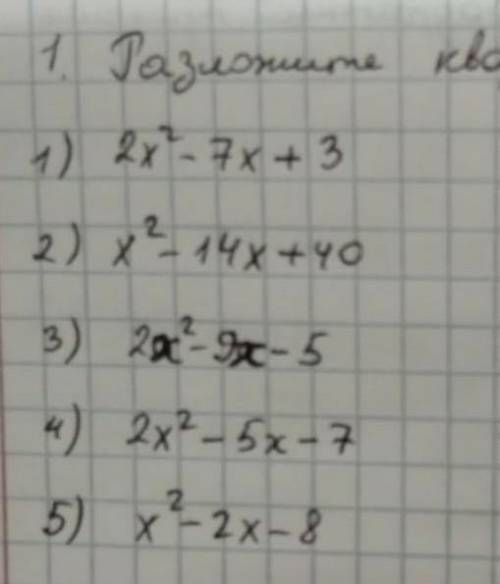 1. Разложите ква
1) 2x² - 7x + 3
2) x² - 14x + 40
3) 2x² - 9x - 5
4) 2x² - 5x - 7
5) x² - 2x - 8